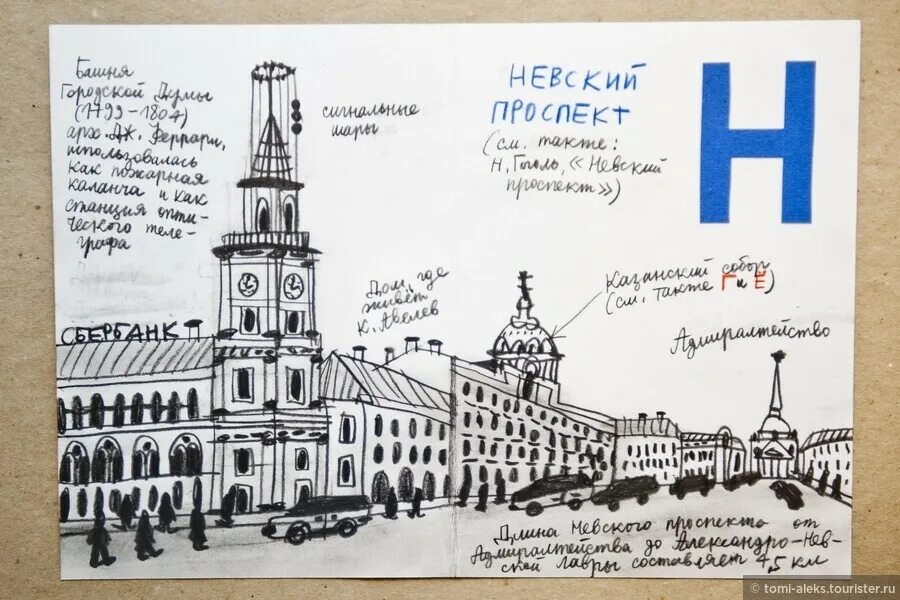 Башня
Городской Думы
(1799-1804)
арх. Дж. Феррари,
использовалась
как пожарная
каланча и как
станция опти-
ческого теле-
графа
сигнальные
шары
НЕВСКИЙ
ПРОСПЕКТ
(см. также:
Н. Гоголь, «Невский
проспект»)
Н
Дом, где
живёт
К. Авелев
Казанский собор
(см. также Г и Ё)
Адмиралтейство
СБЕРБАНК
Длина Невского проспекта от
Адмиралтейства до Александро-Нев-
ской Лавры составляет 4,5 км
© tomi-aleks.tourister.ru